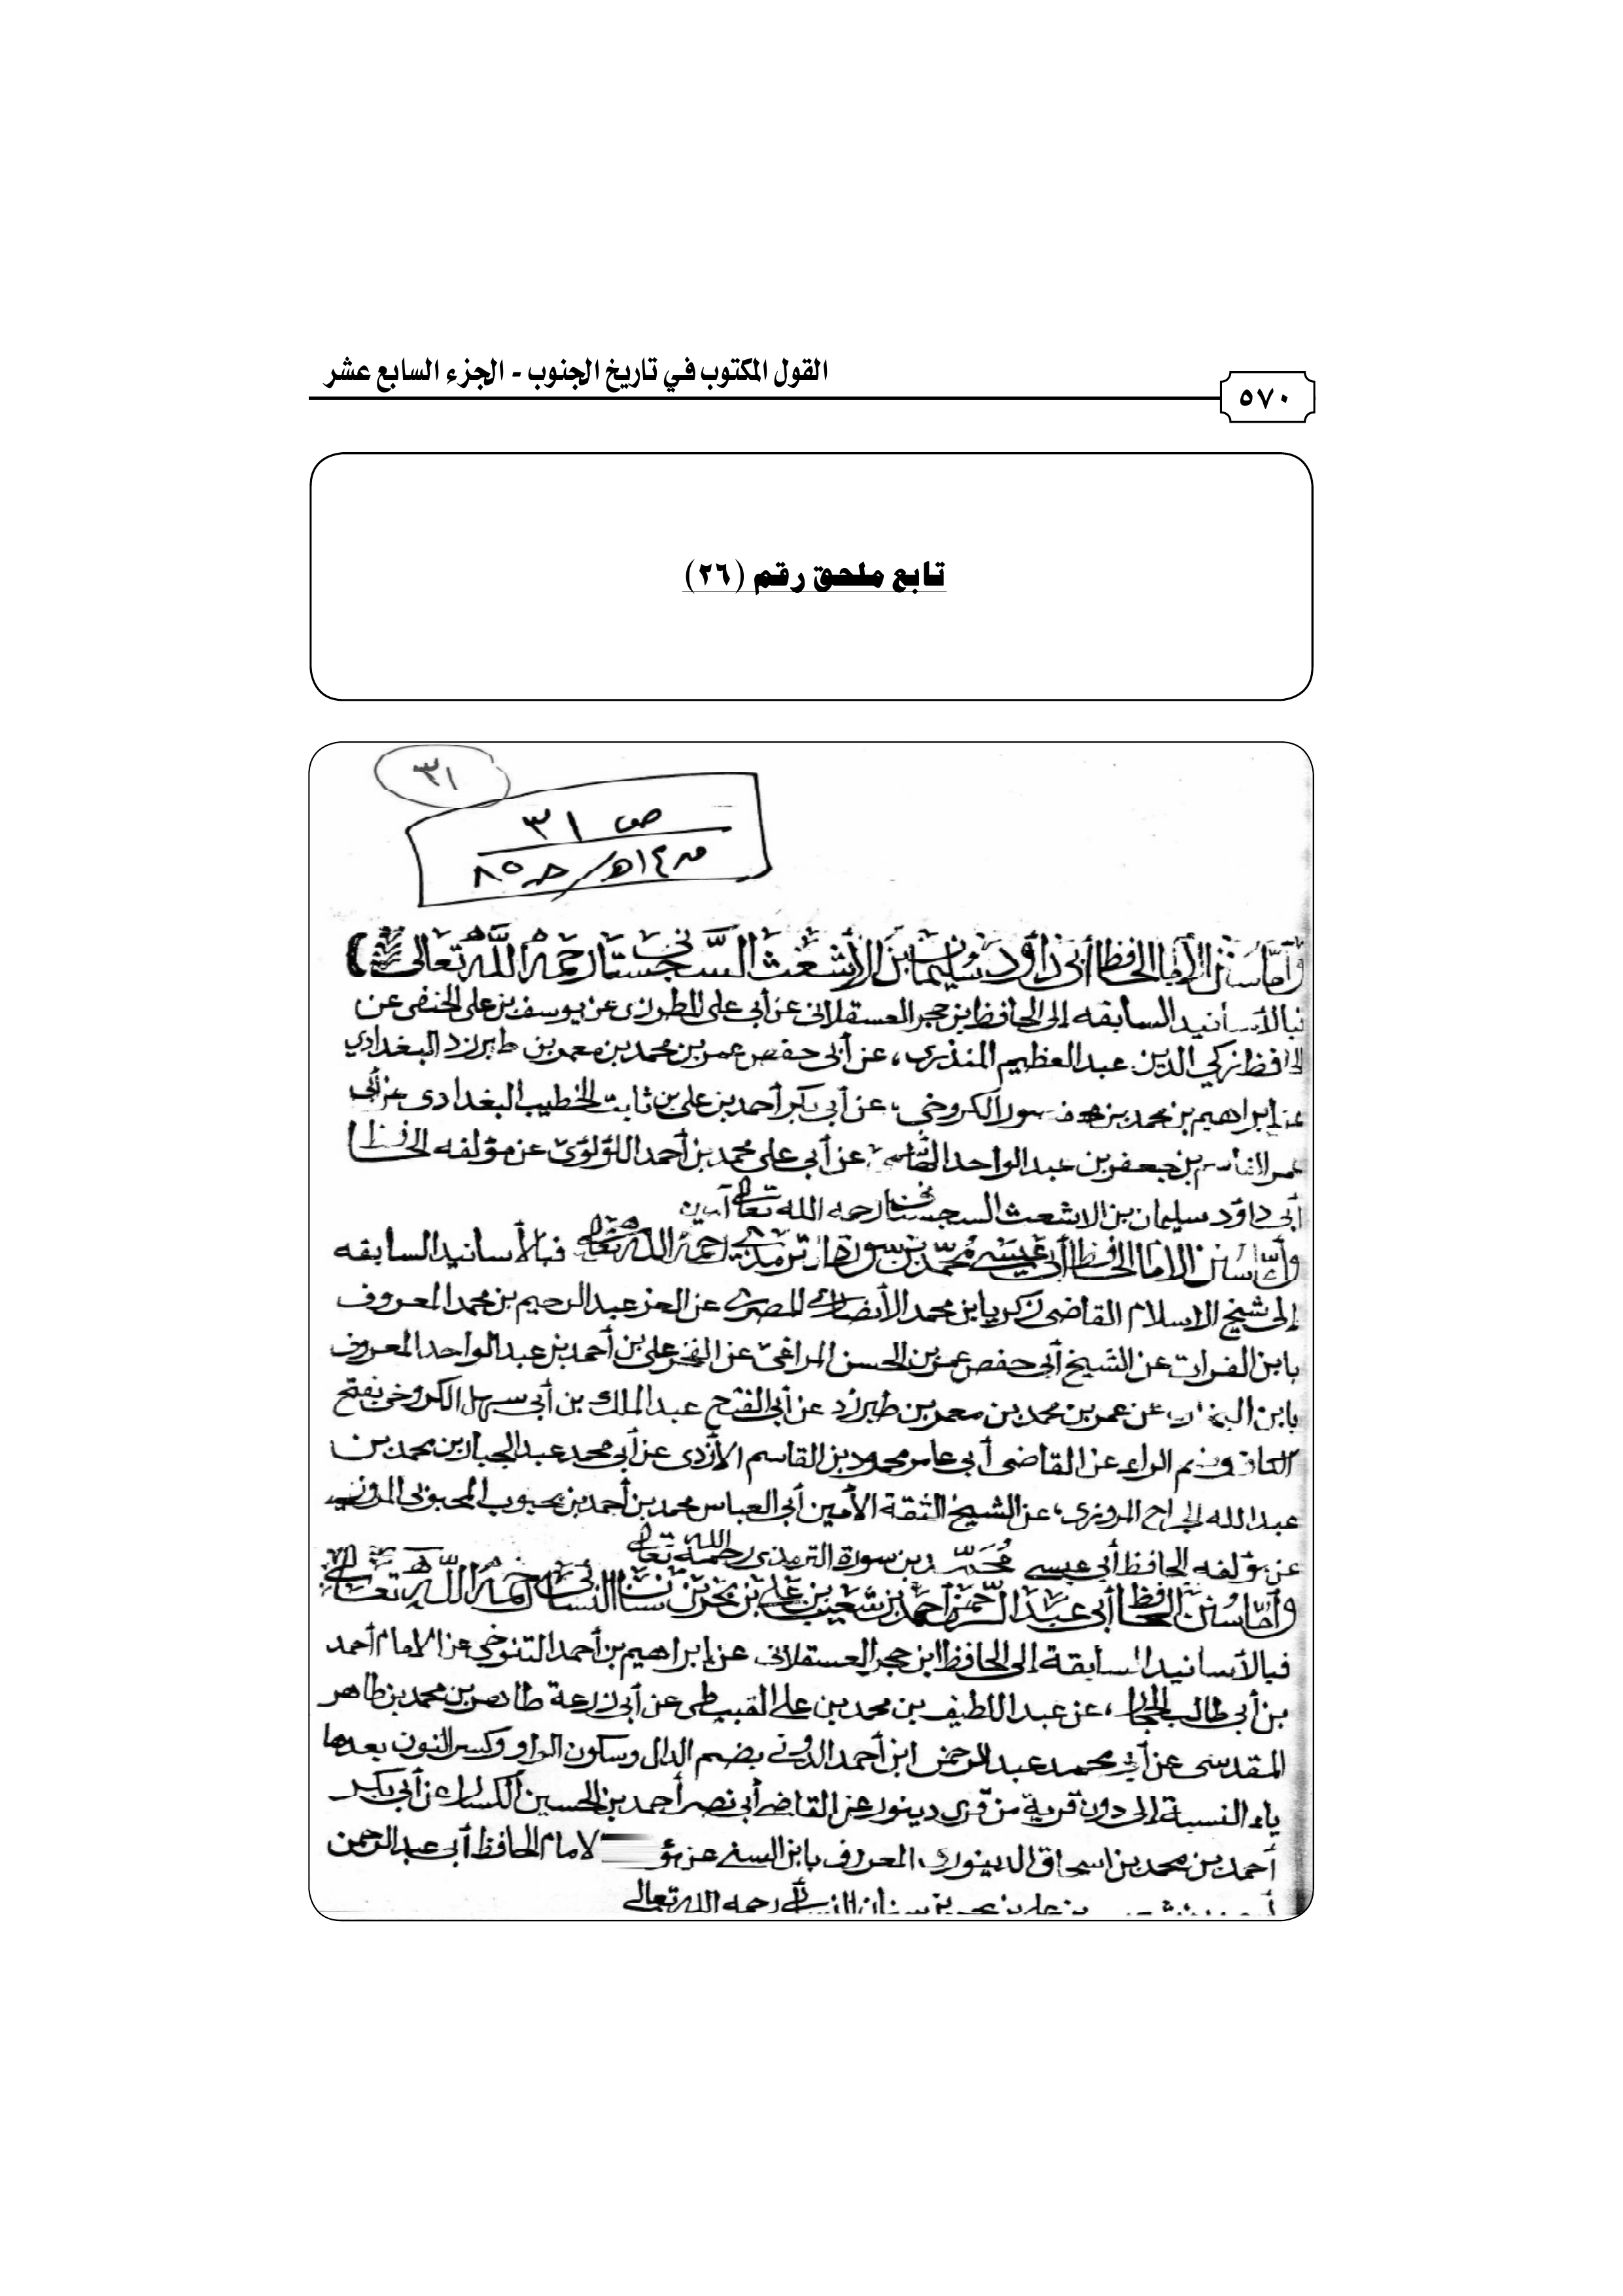 القول المكتوب في تاريخ الجنوب - الجزء السابع عشر
٥٧٠
تابع ملحق رقم (٢٦)
٣١
ص ٣١
وأما سنن الإمام الحافظ أبي داؤد سليمان بن الأشعث السجستاني رحمه الله تعالى
فبالأسانيد السابقه إلى الحافظ ابن حجر العسقلاني عن أبي علي المطرزي عن يوسف بن علي الحنفي عن
الحافظ زكي الدين عبد العظيم المنذري، عن أبي حفص عمر بن محمد بن معمر بن طبرزد البغدادي
عن إبراهيم بن محمد بن منصور الكروخي، عن أبي بكر أحمد بن علي بن ثابت الخطيب البغدادي عن أبي
عمر القاسم بن جعفر بن عبد الواحد الهاشمي، عن أبي علي محمد بن أحمد اللؤلؤي عن مؤلفه الحافظ
أبي داؤد سليمان بن الاشعث السجستاني رحمه الله تعالى آمين
وأما سنن الإمام الحافظ أبي عيسى محمد بن سورة الترمذي رحمه الله تعالى فبالأسانيد السابقه
إلى شيخ الاسلام القاضي زكريا بن محمد الأنصاري المصري عن العز عبد الرحيم بن محمد المعروف
بابن الفرات عن الشيخ أبي حفص عمر بن الحسن المراغي عن الفخر علي بن أحمد بن عبد الواحد المعروف
بابن البخاري عن عمر بن محمد بن معمر بن طبرزد عن أبي الفتح عبد الملك بن أبي سهل الكروخي بفتح
الكاف وضم الراء عن القاضي أبي عامر محمود بن القاسم الأزدي عن أبي محمد عبد الجبار بن محمد بن
عبد الله الجراح المروزي، عن الشيخ الثقة الأمين أبي العباس محمد بن أحمد بن محبوب المحبوبي المروزي
عن مؤلفه الحافظ أبي عيسى محمد بن سورة الترمذي رحمه الله تعالى
وأما سنن الحافظ أبي عبد الرحمن أحمد بن شعيب بن علي بن بحر بن سنان النسائي رحمه الله تعالى
فبالأسانيد السابقة إلى الحافظ ابن حجر العسقلاني عن إبراهيم بن أحمد التنوخي عن الامام أحمد
بن أبي طالب الحجار، عن عبد اللطيف بن محمد بن علي القبيطي عن أبي زرعة طاهر بن محمد بن طاهر
المقدسي عن أبي محمد عبد الرحمن ابن أحمد الدوني بضم الدال وسكون الواو وكسر النون بعدها
ياء النسبة إلى دون قرية من قرى دينور عن القاضي أبي نصر أحمد بن الحسين الكسار عن أبي بكر
أحمد بن محمد بن اسحاق الدينوري المعروف بابن السني عن الامام الحافظ أبي عبد الرحمن
بن علي بن بحر بن سنان النسائي رحمه الله تعالى